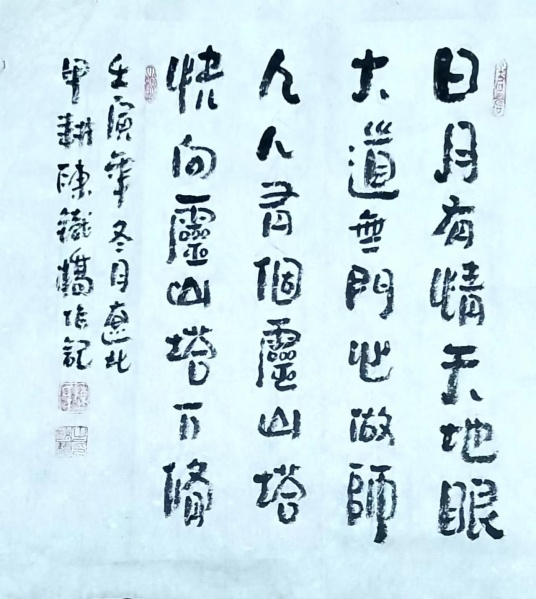 日月有情天地眼
大道無門心做師
人人有個靈山塔
快向靈山塔下脩
壬寅年冬月遼北
耕陳鐵橋作記